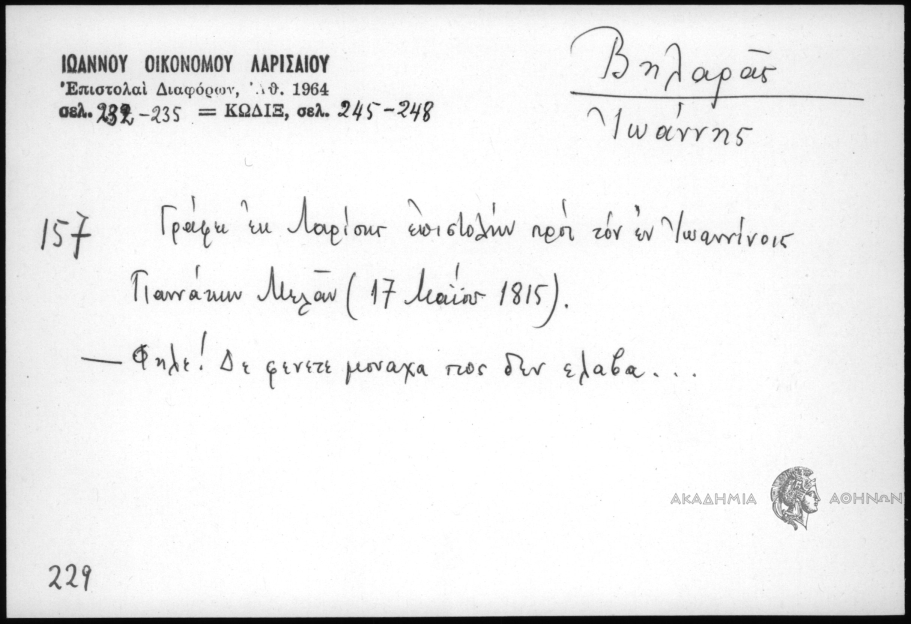 ΙΩΑΝΝΟΥ ΟΙΚΟΝΟΜΟΥ ΛΑΡΙΣΑΙΟΥ
Ἐπιστολαὶ Διαφόρων, Ἀθ. 1964
σελ. 232-235 = ΚΩΔΙΞ, σελ. 245-248
Βηλαρᾶς
Ἰωάννης
157 Γράφει ἐκ Λαρίσης ἐπιστολὴν πρὸς τὸν ἐν Ἰωαννίνοις
Γιαννάκην Μελᾶν (17 Μαΐου 1815).
— Φηλε! Δε φενετε μοναχα πος δεν ελαβα...
ΑΚΑΔΗΜΙΑ ΑΘΗΝΩΝ
229